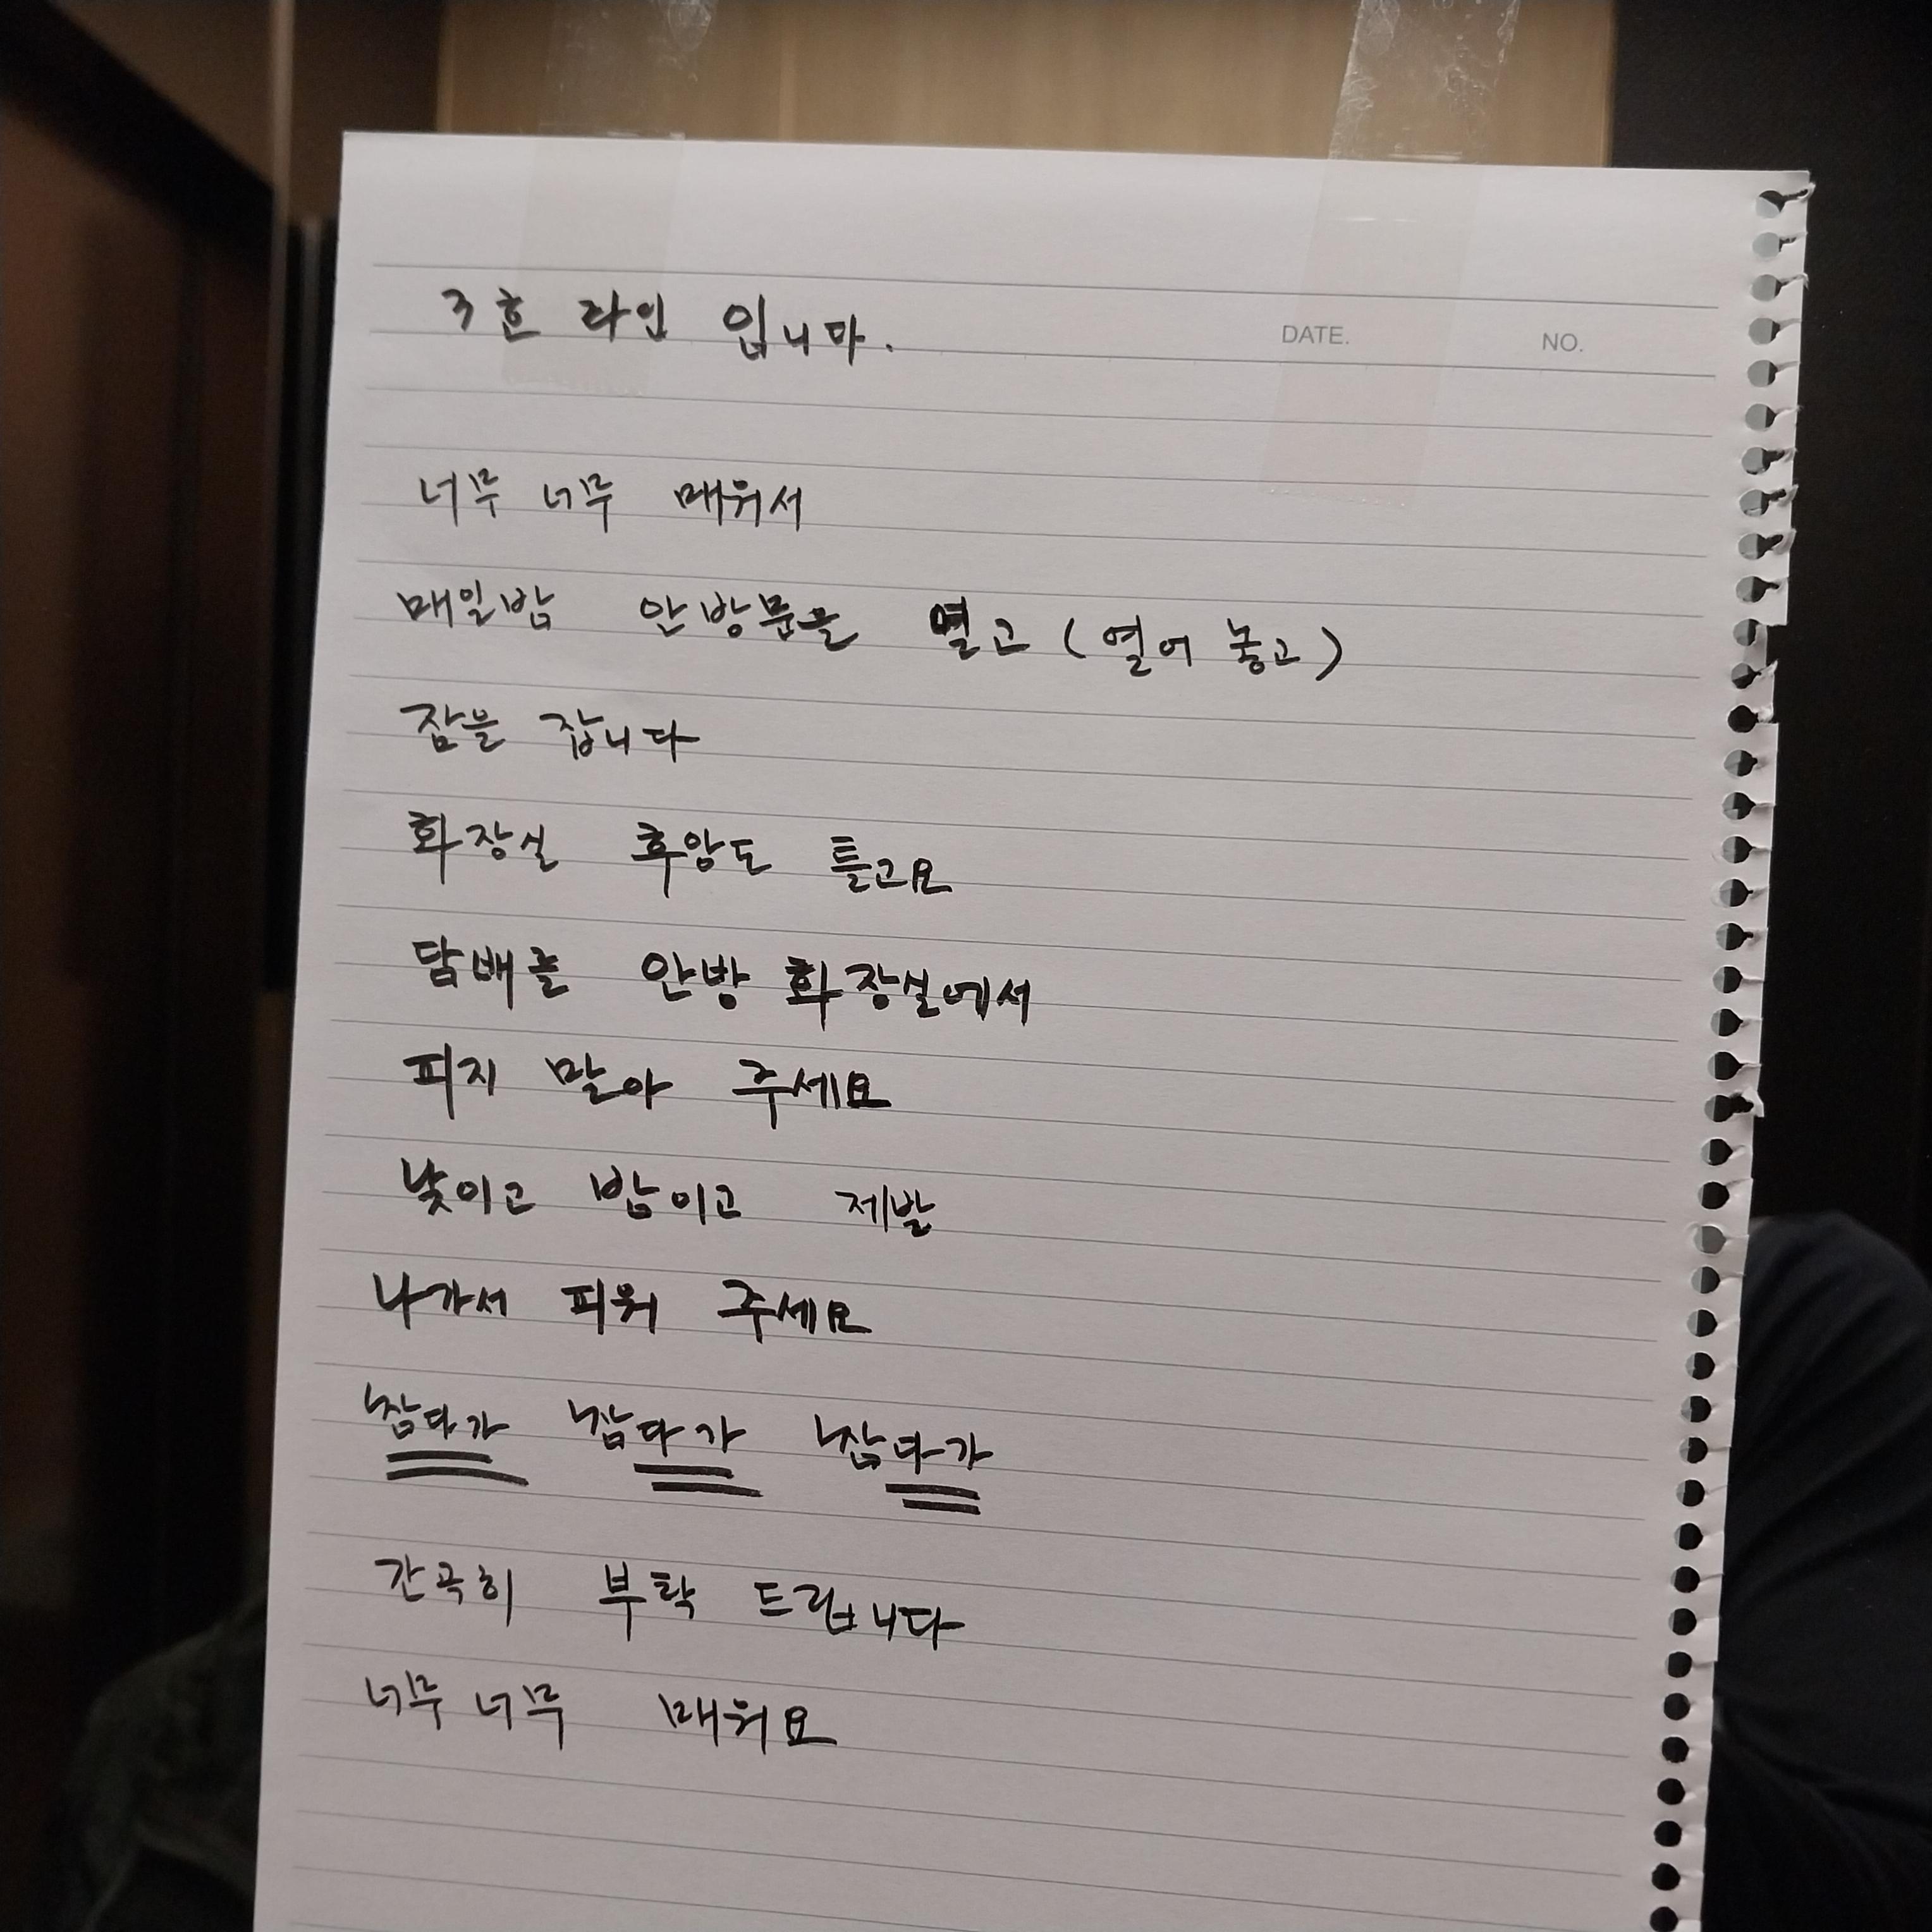 3호 라인 입니다.
DATE. NO.
너무 너무 매워서
매일밤 안방문을 열고 (열어 놓고)
잠을 잡니다
화장실 후앙도 틀고요
담배를 안방 화장실에서
피지 말아 주세요
낮이고 밤이고 제발
나가서 피워 주세요
잠자다가 잠자다가 잠자다가
간곡히 부탁 드립니다
너무 너무 매워요